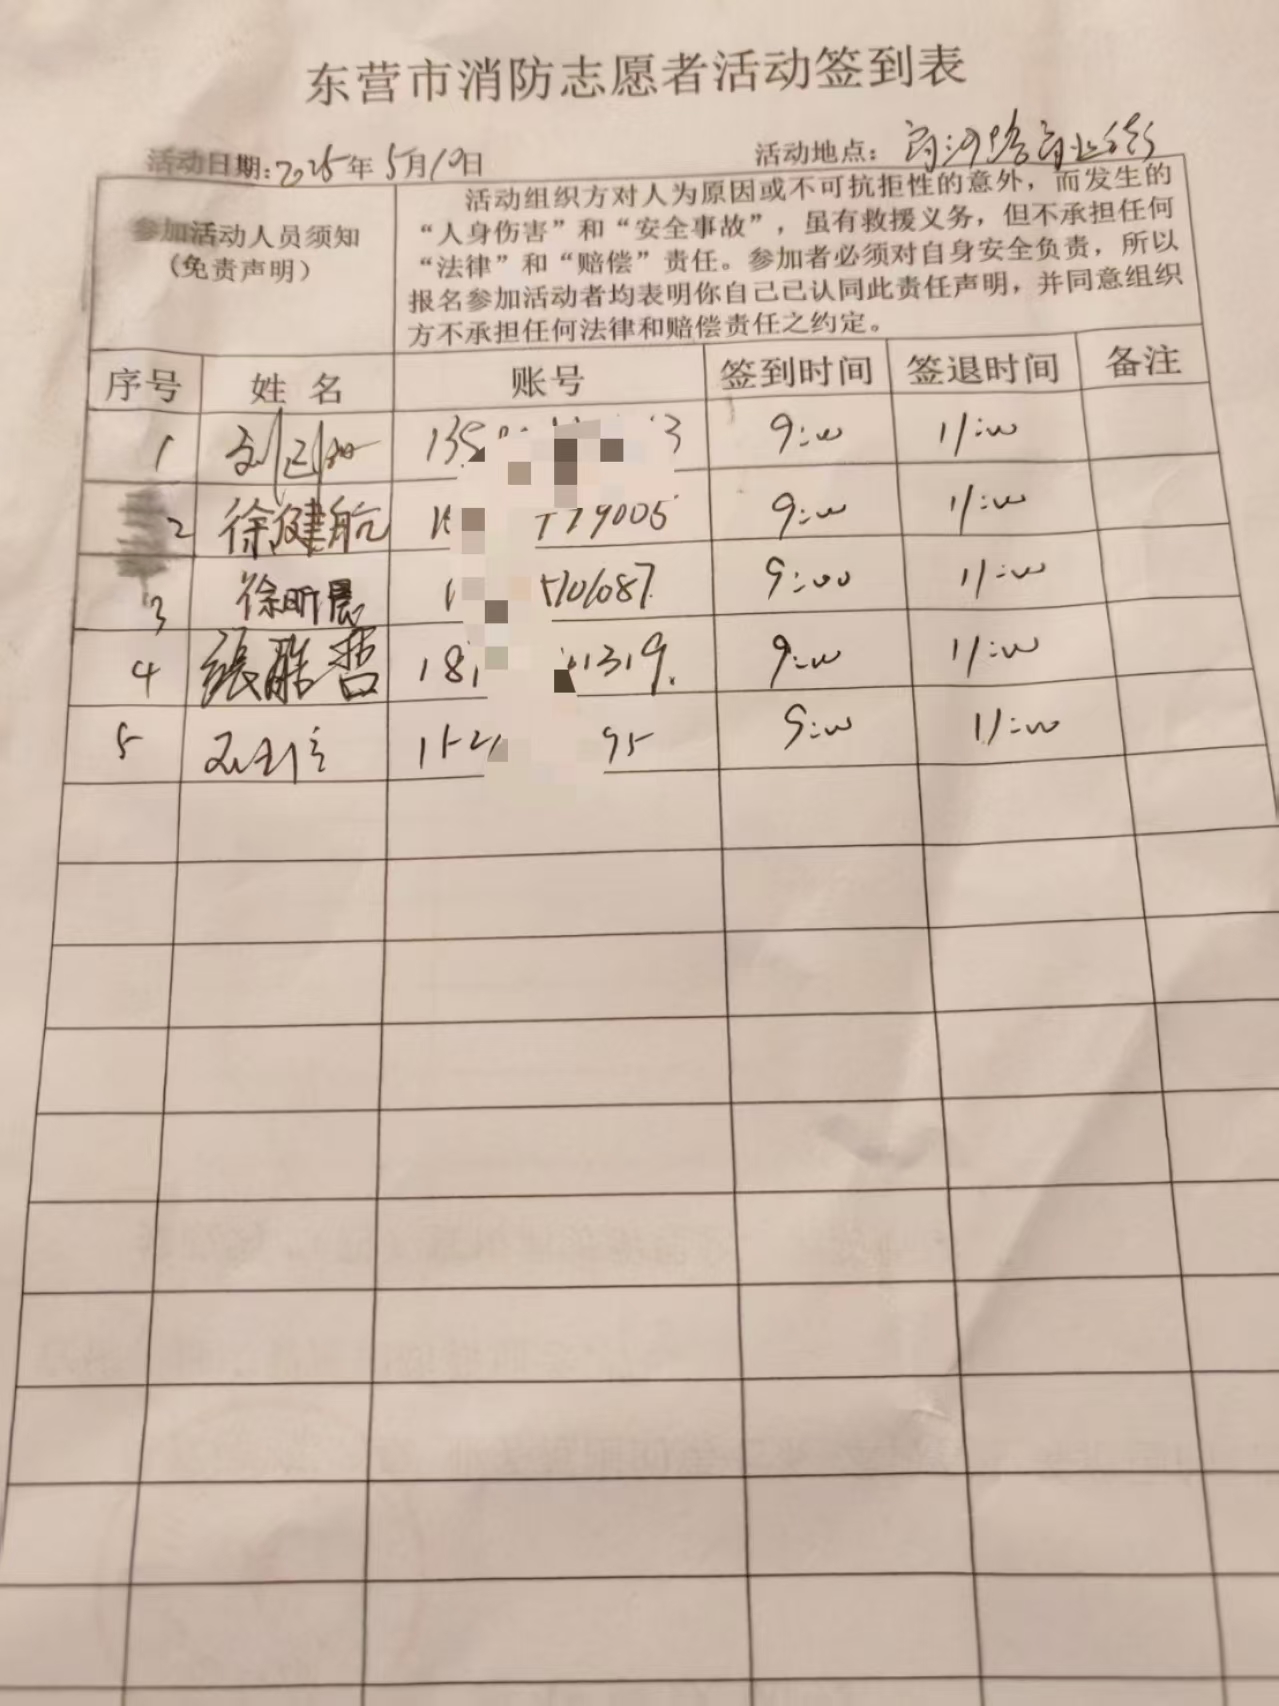 东营市消防志愿者活动签到表
活动日期:2025年5月10日 活动地点：商河路商业街
参加活动人员须知
(免责声明)
活动组织方对人为原因或不可抗拒性的意外，而发生的
“人身伤害”和“安全事故”，虽有救援义务，但不承担任何
“法律”和“赔偿”责任。参加者必须对自身安全负责，所以
报名参加活动者均表明你自己已认同此责任声明，并同意组织
方不承担任何法律和赔偿责任之约定。
序号 姓名 账号 签到时间 签退时间 备注
1 刘 135 3 9:00 11:00
2 徐健航 79005 9:00 11:00
3 徐昕晨 1 5106087 9:00 11:00
4 張胜哲 18 1319. 9:00 11:00
5 152 95 9:00 11:00